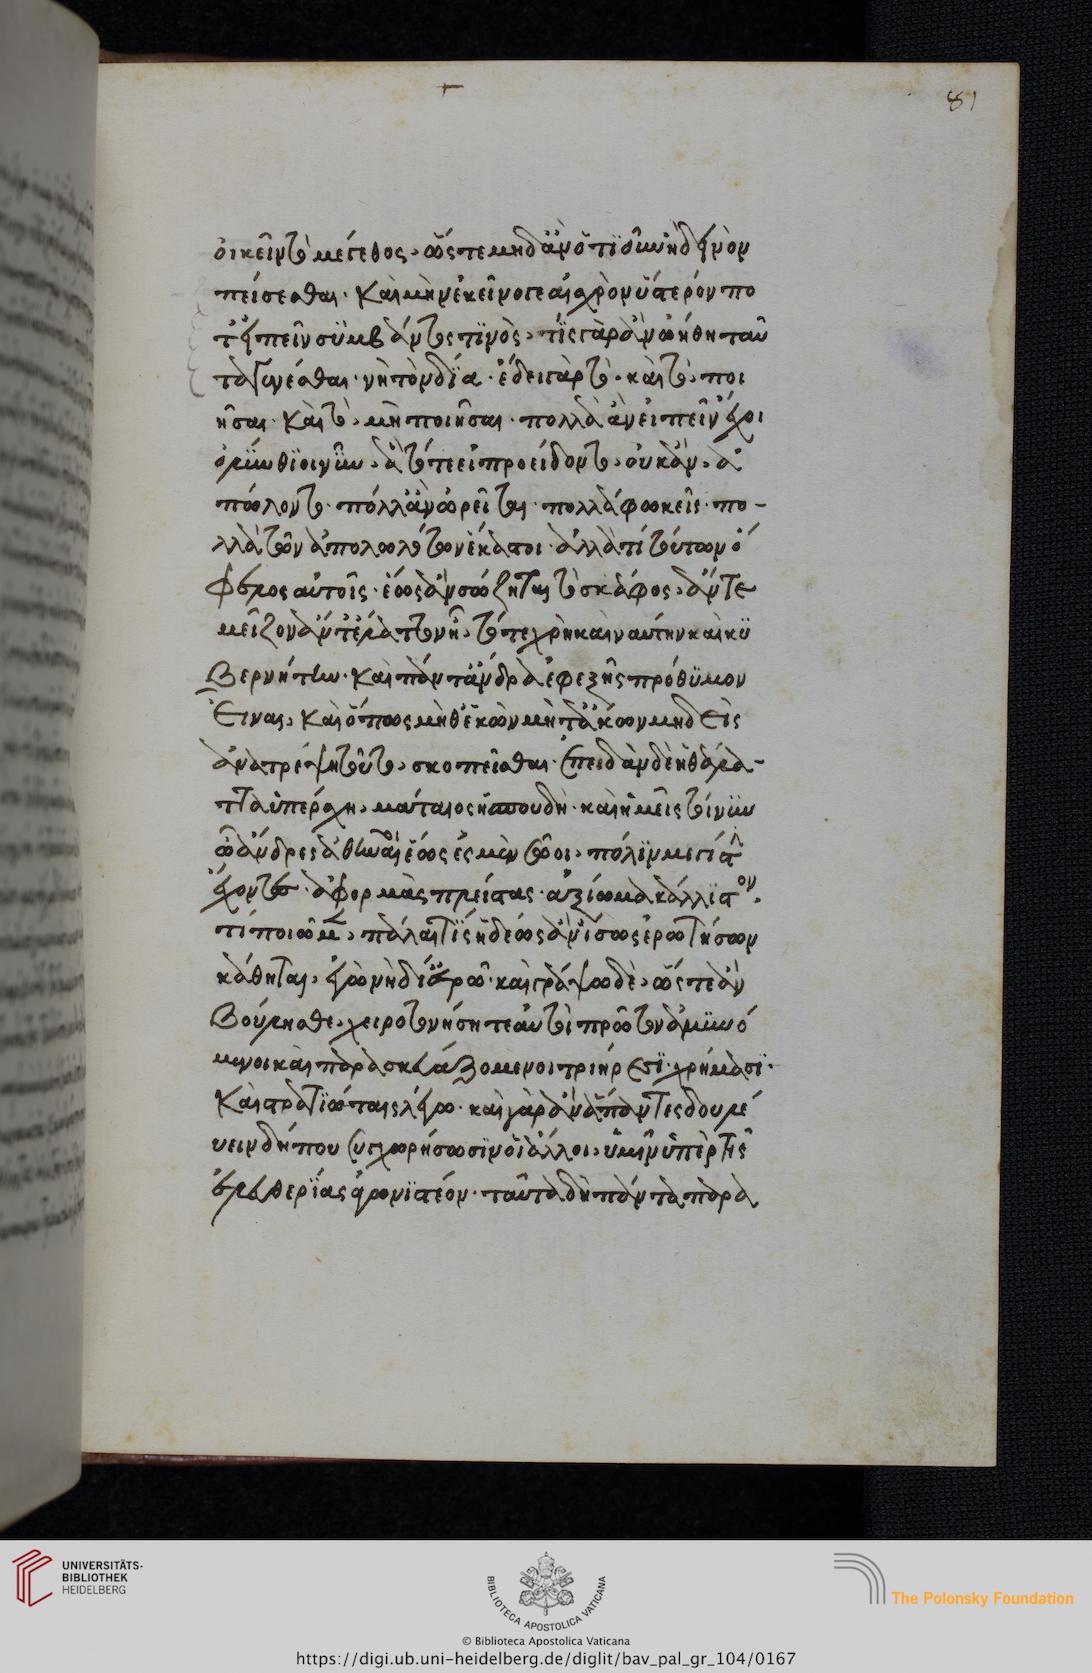 81
οικεῖν τὸ μέγεθος, ὥστε μηδ' ἂν ὁτιοῦν ᾖ δεινὸν
πείσεσθαι. Καὶ μὴν ἐκεῖνό γε αἰσχρὸν ὕστερόν πο
τ' εἰπεῖν συμβάντος τινὸς, τίς γὰρ ἂν ᾠήθη ταῦ
τα γενέσθαι. νὴ τὸν δία. ἔδει γὰρ τὸ. καὶ τὸ. ποι
ῆσαι. Καὶ τὸ, μὴ ποιῆσαι. πολλὰ ἂν εἰπεῖν ἔχοι
ὀλύνθιοι νῦν, ἃ τότε εἰ προείδοντο, οὐκ ἂν ἀ
πώλοντο. πόλλ' ἂν ὠρεῖται. πολλὰ φωκεῖς. πο-
λλὰ τῶν ἀπολωλότων ἕκαστοι. ἀλλὰ τί τούτων ὄ
φελος αὐτοῖς. ἕως ἂν σώζηται τὸ σκάφος, ἄν τε
μεῖζον ἄν τ' ἔλαττον ᾖ, τότε χρὴ καὶ ναύτην καὶ κυ
βερνήτην. Καὶ πάντ' ἄνδρα ἐφεξῆς πρόθυμον
Εἶναι, Καὶ ὅπως μὴθ' ἑκὼν μὴτ' ἄκων μηδεὶς
ἀνατρέψῃ τοῦτο, σκοπεῖσθαι. ἐπειδὰν δὲ ἡ θάλα-
ττα ὑπέρσχῃ, μάταιος ἡ σπουδή. καὶ ἡμεῖς τοίνυν
ὦ ἄνδρες ἀθηναῖοι ἕως ἐσμὲν σῶοι, πόλιν μεγίστην
ἔχοντες. ἀφορμὰς πλείστας. ἀξίωμα κάλλιστον.
τί ποιῶμεν, πάλαι τίς ἡδέως ἂν ἴσως ἐρωτήσων
κάθηται, ἐγὼ νὴ δί' ἐρῶ. καὶ γράψω δὲ, ὥστε ἂν
Βούλησθε, χειροτονήσητε αὐτοὶ πρῶτον ἀμυνό
μενοι καὶ παρασκευαζόμενοι τριήρεσι. χρήμασι.
Καὶ στρατιώταις λέγω. καὶ γὰρ ἂν ἅπαντες δουλεύ
υειν δήπου συγχωρήσωσιν οἱ ἄλλοι, ὑμῖν ὑπὲρ τῆς
ἐλευθερίας ἀγωνιστέον. ταῦτα δὴ πάντα παρα
UNIVERSITÄTS-
BIBLIOTHEK
HEIDELBERG
BIBLIOTECA APOSTOLICA VATICANA
The Polonsky Foundation
© Biblioteca Apostolica Vaticana
https://digi.ub.uni-heidelberg.de/diglit/bav_pal_gr_104/0167